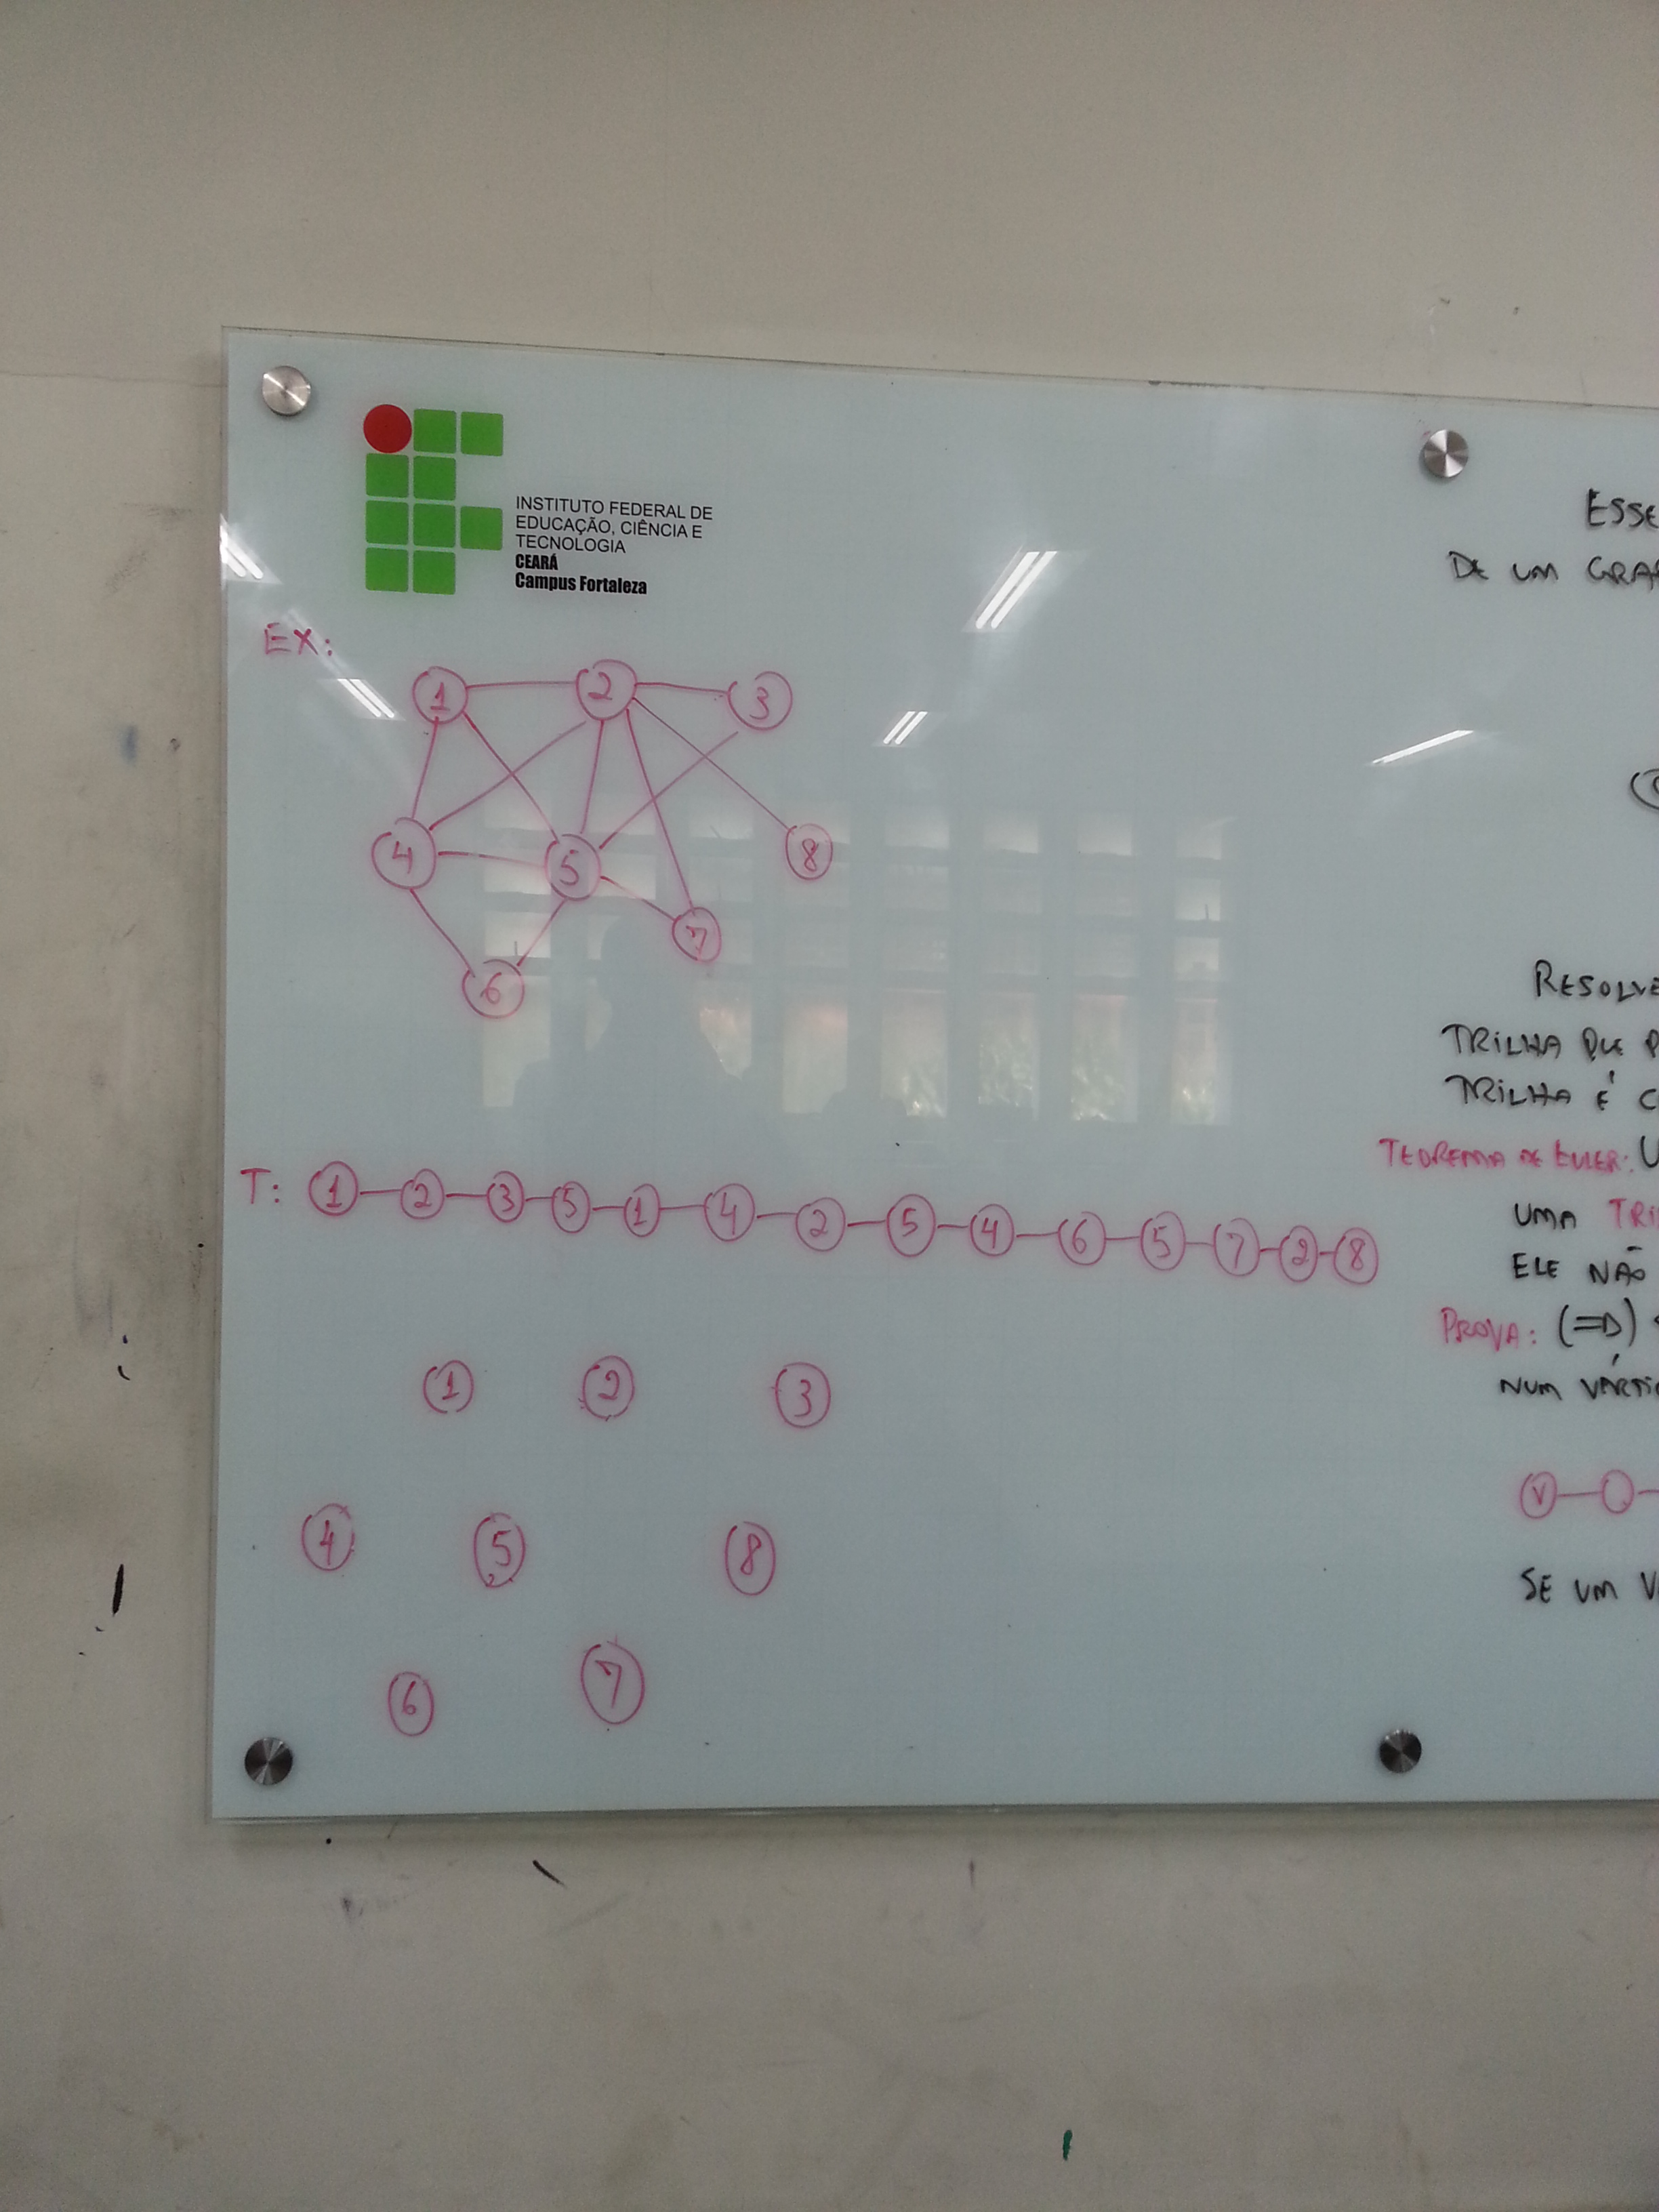 INSTITUTO FEDERAL DE
EDUCAÇÃO, CIÊNCIA E
TECNOLOGIA
CEARÁ
Campus Fortaleza
EX:
1 2 3
4 5 8
7
6
T: 1 2 3 5 1 4 2 5 4 6 5 7 2 8
1 2 3
4 5 8
6 7
ESSE
DE UM GRA
RESOLVE
TRILHA QUE P
TRILHA É C
TEOREMA DE EULER: U
UMA TRI
ELE NÃO
PROVA: (=>)
NUM VÉRTI
V
SE UM V